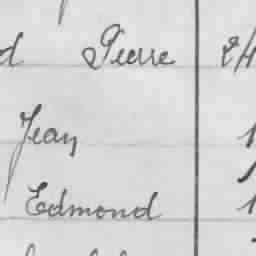 d Pierre 24
Jean 1
Edmond 1